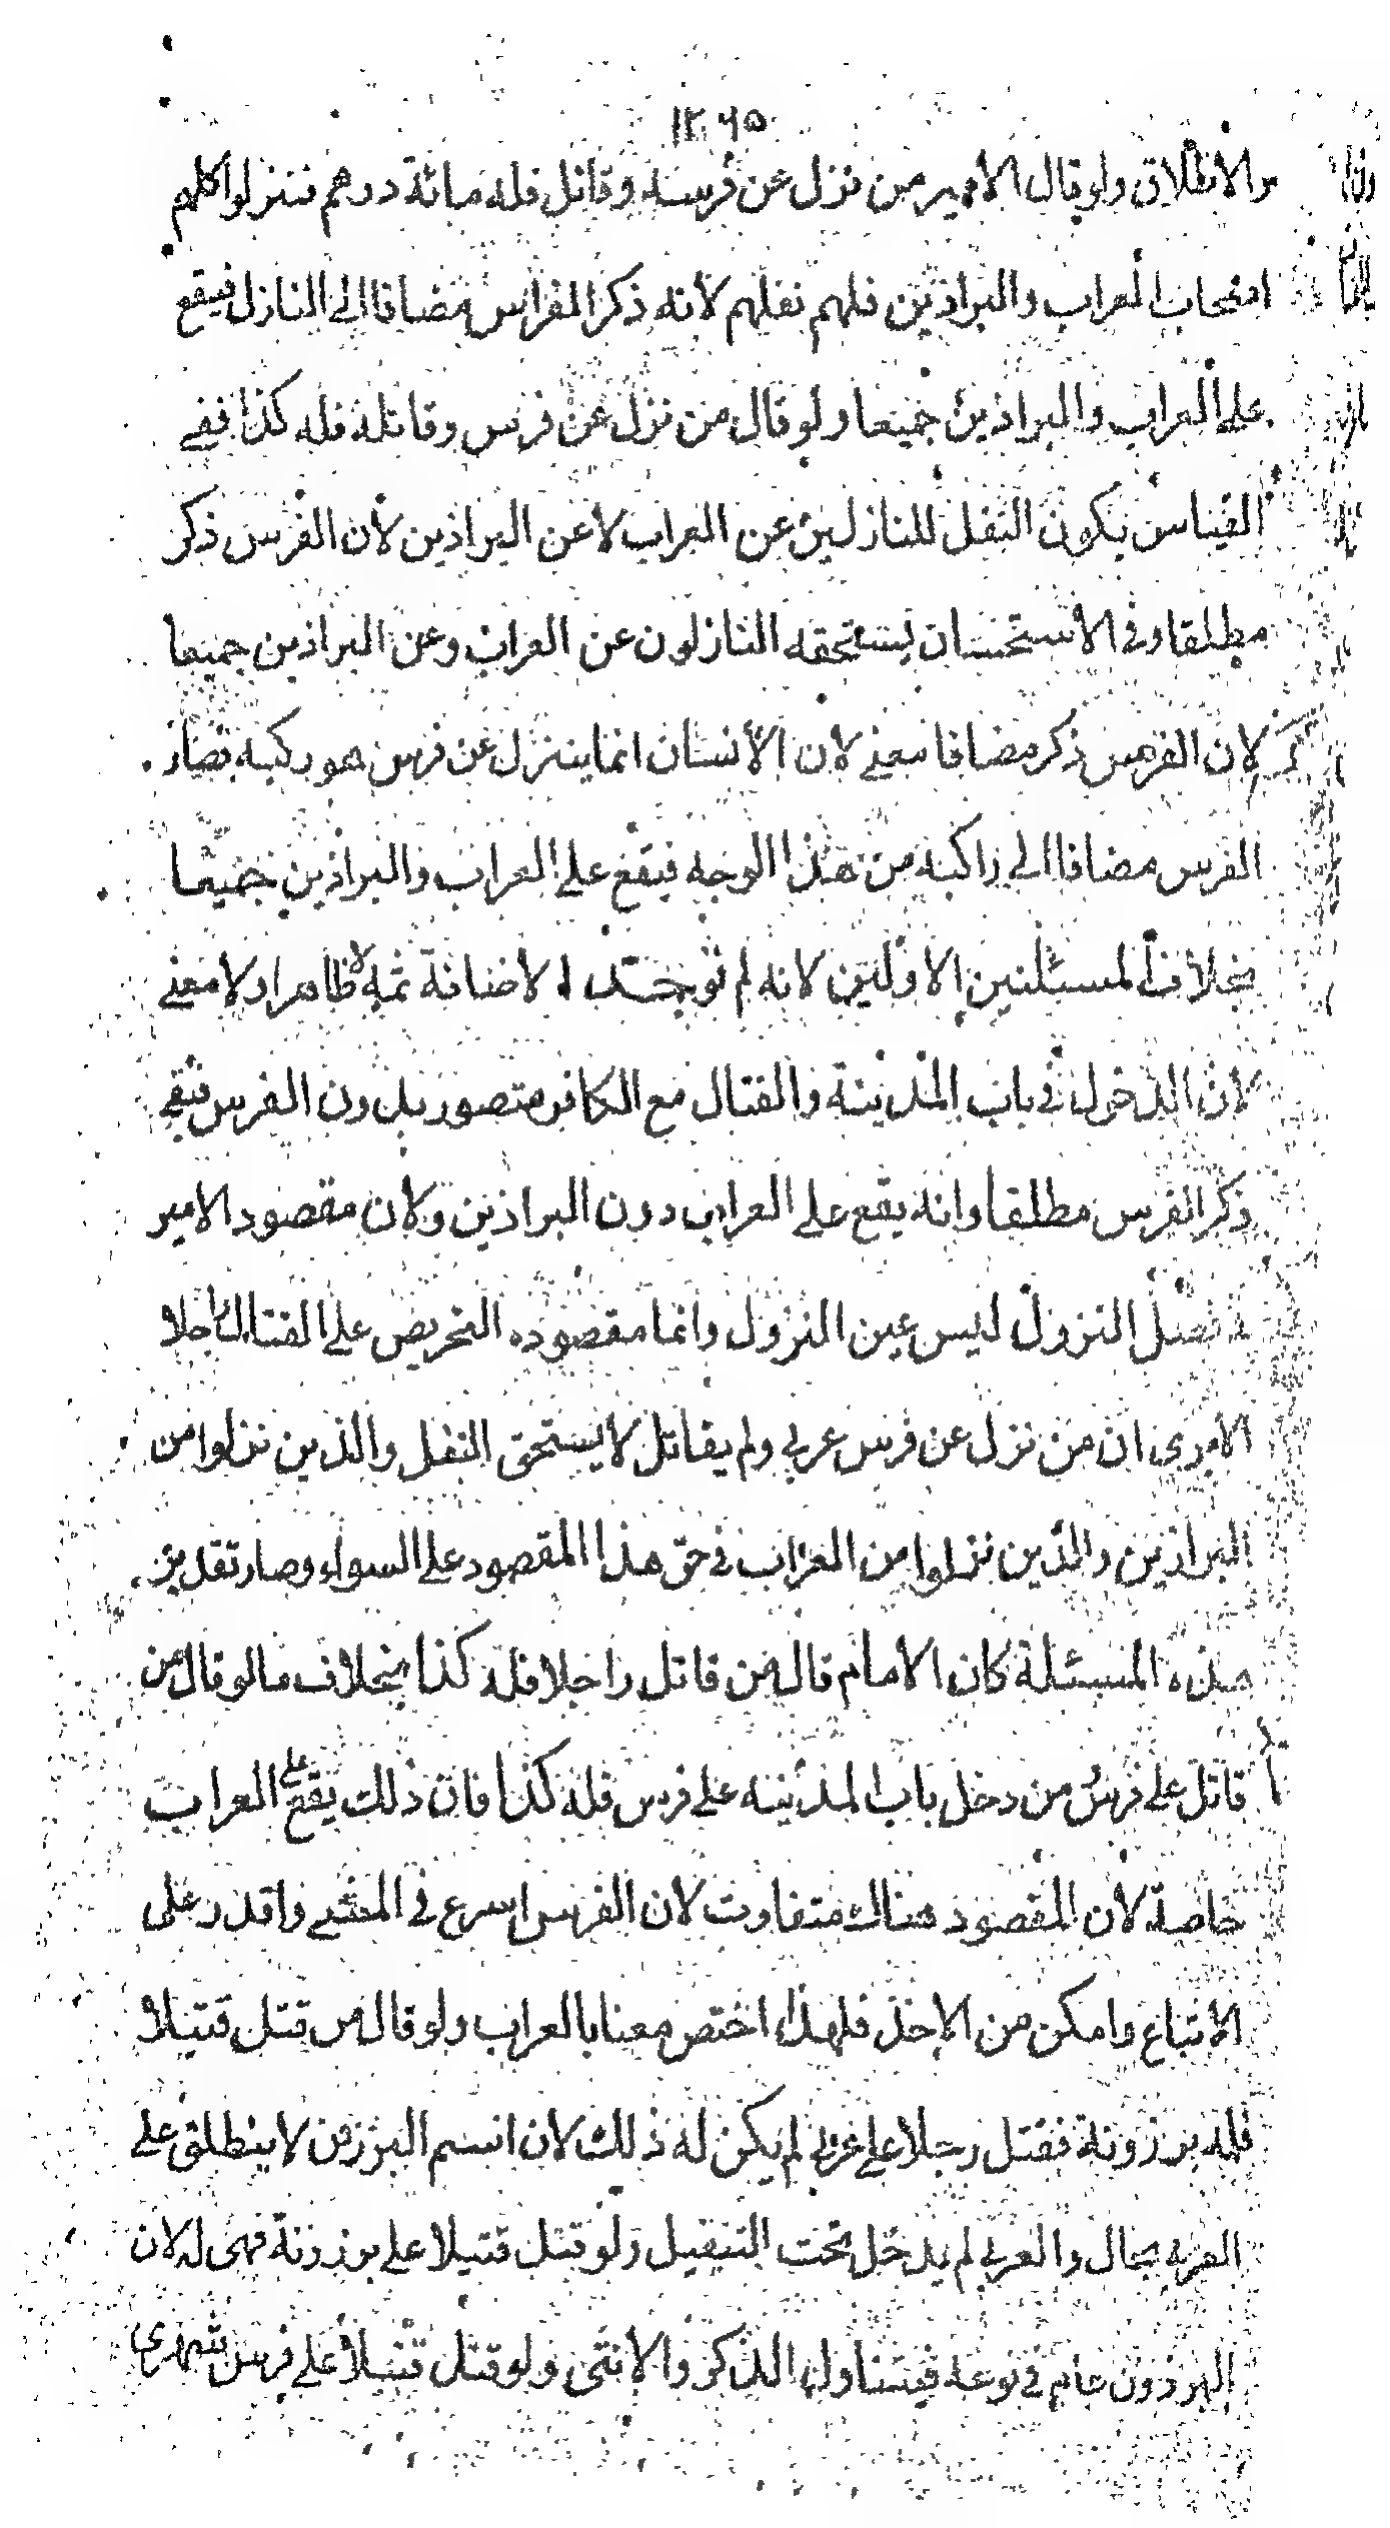 ١٢٠٦٥
الانطلاق ولو قال الأمير من نزل عن فرسه وقاتل فله مائة درهم فنزلوا كلهم
اصحاب العراب والبراذين فلهم نفلهم لأنه ذكر الفراس مضافا الى النازل فيقع
على العراب والبراذين جميعا ولو قال من نزل عن فرس وقاتله فله كذا ففي
القياس يكون النفل للنازلين عن العراب لا عن البراذين لأن الفرس ذكر
مطلقا وفي الاستحسان يستحقه النازلون عن العراب وعن البراذين جميعا
لان الفرس ذكر مضافا معنى لان الأنسان انما ينزل عن فرس هو ركبه فصار
الفرس مضافا الى راكبه من هذا الوجه فيقع على العراب والبراذين جميعا
بخلاف المسئلتين الاولتين لانه لم توجد الاضافة ثمه لا ظاهرا ولا معنى
لان الدخول في باب المدينة والقتال مع الكافر متصور بدون الفرس فبقي
ذكر الفرس مطلقا وانه يقع على العراب دون البراذين ولان مقصود الامير
النزول ليس عين النزول وانما مقصوده التحريض على القتال راجلا
الا يرى ان من نزل عن فرس عربي ولم يقاتل لا يستحق النفل والذين نزلوا من
البراذين والذين نزلوا من العراب في حق هذا المقصود على السواء وصار تقدير
هذه المسئلة كان الامام قال من قاتل راجلا فله كذا بخلاف ما لو قال من
قاتل على فرس من دخل باب المدينه على فرس فله كذا فان ذلك يقع على العراب
خاصة لان المقصود هناك متفاوت لان الفرس اسرع في المشي واقدر على
الاتباع وامكن من الاخذ فلهذا اختص معنا بالعراب ولو قال من قتل قتيلا
فله برذونة فقتل رجلا على عربي لم يكن له ذلك لان اسم البرذون لا ينطلق على
العربي بحال والعربي لم يدخل تحت التنفيل ولو قتل قتيلا على برذونة فهى له لان
البرذون عام في نوعه فيتناول الذكر والانثى ولو قتل قتيلا على فرس شهرى